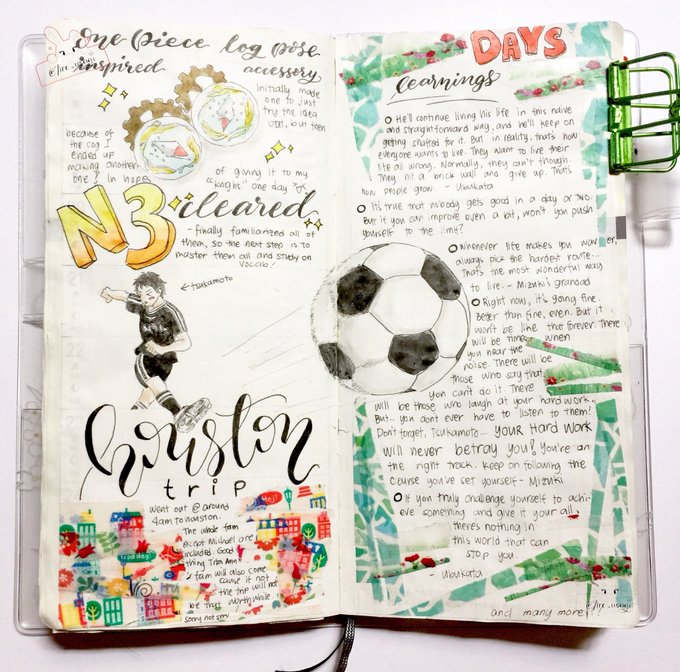 One Piece log pose
inspired accessory
Initially made
one to just
try the idea
out, but then
because of
the cog I
ended up
making another
one! In hopes
of giving it to my
"knight" one day
N3 cleared
- finally familiarized all of
them, so the next step is to
master them all and study on
vocab!
←tsukamoto
houston
trip
went out @ around
4am to houston.
The whole fam
except Michael are
included. Good
thing Tita Ann
& fam will also come
cause if not
the trip will not
be that worthwhile..
sorry not sorry
DAYS
learnings
He'll continue living his life in this naive
and straightforward way, and he'll keep on
getting shafted for it. But in reality, that's how
everyone wants to live. They want to live their
life all wrong. Normally, they can't though.
They hit a brick wall and give up. That's
how people grow. - Ubukata
It's true that nobody gets good in a day or two.
But if you can improve even a bit, won't you push
yourself to the limit?
Whenever life makes you waver,
always pick the hardest route...
That's the most wonderful way
to live. - Mizuki's grandad
Right now, it's going fine.
Better than fine, even. But it
won't be like that forever. There
will be times when
you hear the
noise. There will be
those who say that
you can't do it. There
will be those who laugh at your hard work.
But.. you don't ever have to listen to them!
Don't forget, Tsukamoto... your hard work
will never betray you! You're on
the right track. Keep on following the
course you've set yourself - Mizuki
If you truly challenge yourself to achi-
eve something and give it your all,
there's nothing in
this world that can
stop you.
- Ubukata
and many more!!